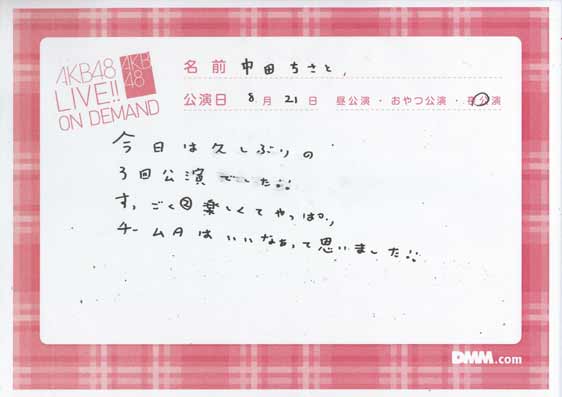 AKB48
LIVE!!
ON DEMAND
AKB
48
名前 中田ちさと
公演日 8月21日 昼公演・おやつ公演・夜公演
今日は久しぶりの
3回公演でした!!
すっごく②楽しくてやっぱり
チームAはいいなぁって思いました!!
DMM.com